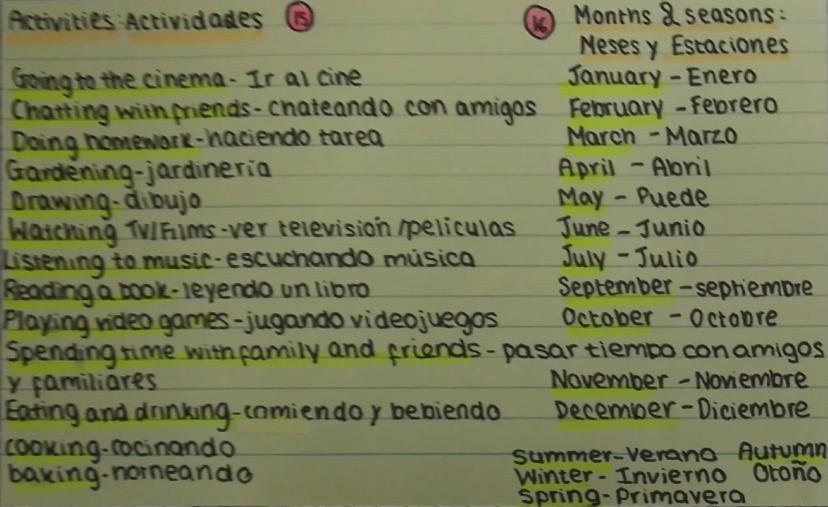 Activities: Actividades 15
Going to the cinema - Ir al cine
Chatting with friends - chateando con amigos
Doing homework - haciendo tarea
Gardening - jardinería
Drawing - dibujo
Watching TV/Films - ver televisión/películas
Listening to music - escuchando música
Reading a book - leyendo un libro
Playing video games - jugando videojuegos
Spending time with family and friends - pasar tiempo con amigos
y familiares
Eating and drinking - comiendo y bebiendo
cooking - cocinando
baking - horneando
16 Months & seasons:
Meses y Estaciones
January - Enero
February - Febrero
March - Marzo
April - Abril
May - Puede
June - Junio
July - Julio
September - septiembre
October - Octobre
November - Noviembre
December - Diciembre
Summer - Verano
Winter - Invierno
Spring - Primavera
Autumn
Otoño